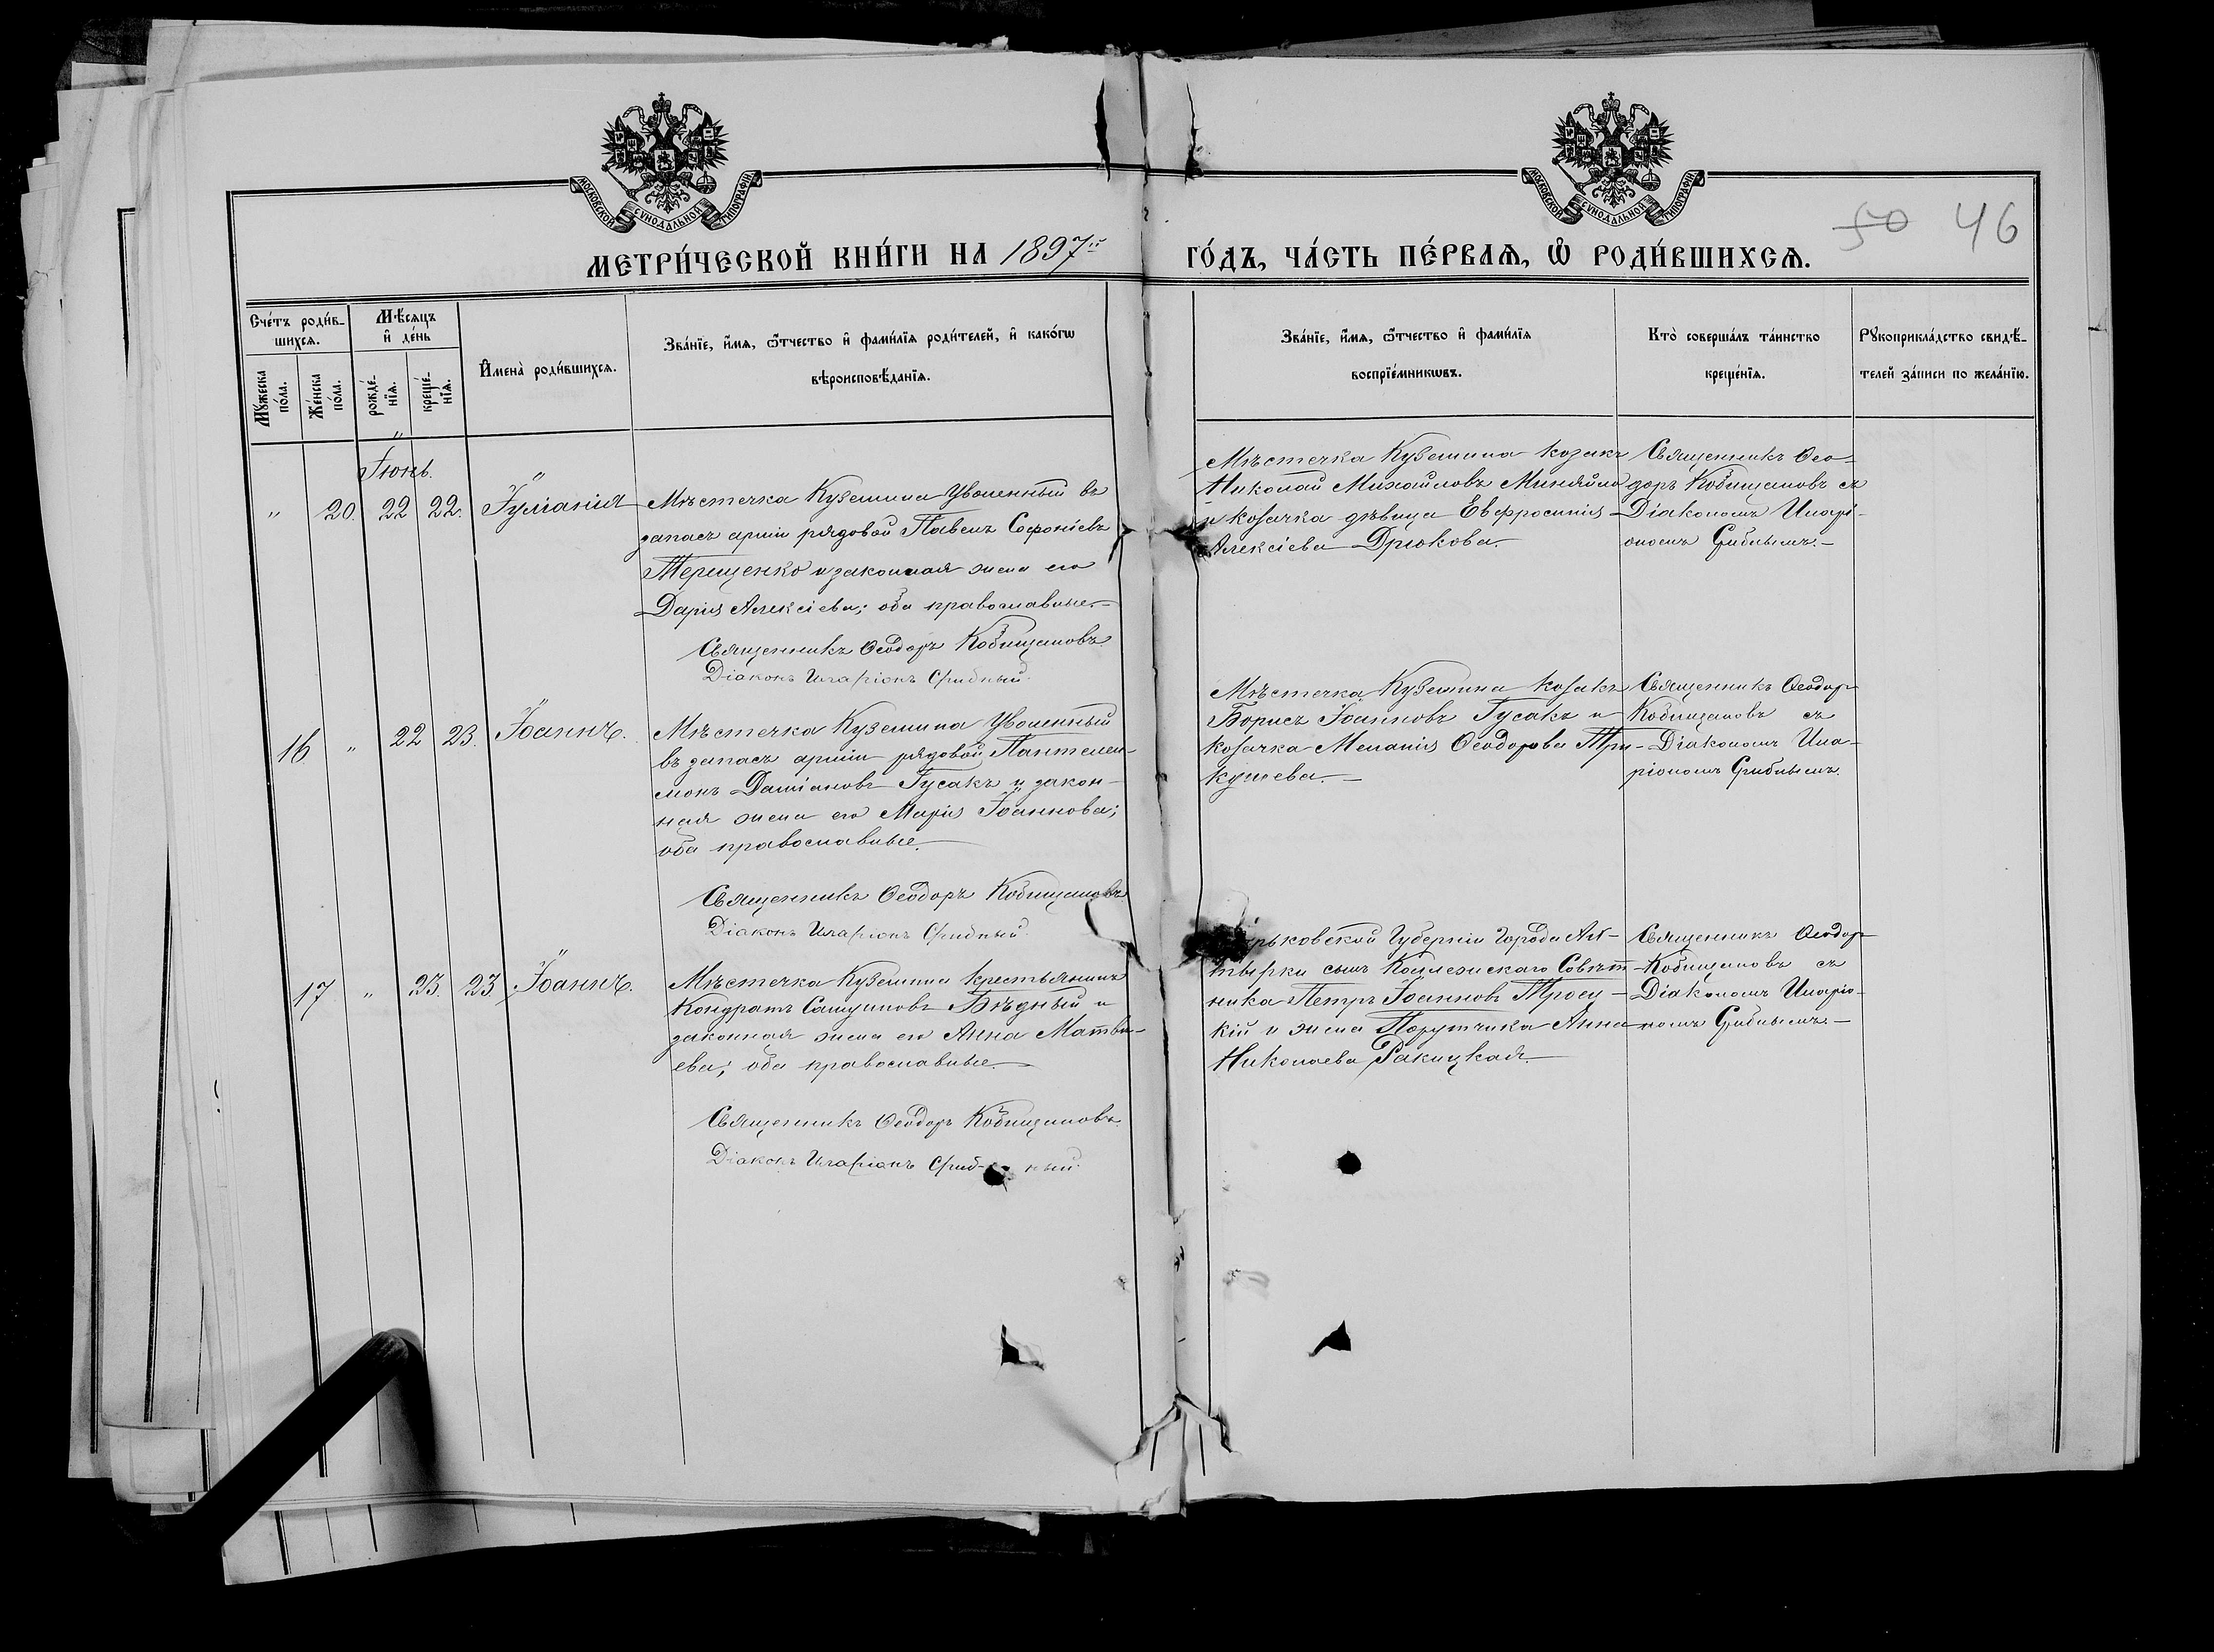 МОСКОВСКОЙ СѴНОДАЛЬНОЙ ТИПОГРАФІИ
МОСКОВСКОЙ СѴНОДАЛЬНОЙ ТИПОГРАФІИ
50 46
МЕТРИ́ЧЕСКОЙ КНИ́ГИ НА 1897й ГО́ДЪ, ЧА́СТЬ ПЕ́РВАѦ, Ѡ҆ РОДИ́ВШИХСѦ.
Сче́тъ роди́в-
шихсѧ.
Мꙋ́жеска по́ла.
Же́нска по́ла.
Мѣ́сѧцъ
и҆ де́нь
рожде́-нїѧ.
креще́-нїѧ.
И҆мена̀ роди́вшихсѧ.
Зва́нїе, и҆́мѧ, ѻ҆́тчество и҆ фами́лїѧ роди́телей, и҆ како́гѡ
вѣроисповѣ́данїѧ.
Зва́нїе, и҆́мѧ, ѻ҆́тчество и҆ фами́лїѧ
воспрїе́мникѡвъ.
Кто̀ соверша́лъ та́инство
креще́нїѧ.
Рꙋкоприкла́дство свидѣ́-
телей за́писи по жела́нїю.
Іюнь.
" 20. 22 22. Іуліанія
Мѣстечка Куземина уволенный въ
запасъ арміи рядовой Павелъ Софоніевъ
Терещенко и законная жена его
Дарія Алексіева; оба православные.—
Священникъ Ѳеодоръ Кобищановъ
Діаконъ Иларіонъ Срибный.
Мѣстечка Куземина козакъ
Николай Михайловъ Миняйло
и козачка дѣвица Евфросинія
Алексіева Дрюкова.
Священникъ Ѳео-
доръ Кобищановъ съ
Діакономъ Иларі-
ономъ Срибнымъ.—
16 " 22 23. Іоаннъ.
Мѣстечка Куземина уволенный
въ запасъ арміи рядовой Пантелеи-
монъ Даміановъ Гусакъ и закон-
ная жена его Марія Іоаннова;
оба православные.—
Священникъ Ѳеодоръ Кобищановъ
Діаконъ Иларіонъ Срибный.
Мѣстечка Куземина козакъ
Борисъ Іоанновъ Гусакъ и
козачка Меланія Ѳеодорова Три-
кушева.—
Священникъ Ѳеодоръ
Кобищановъ съ
Діакономъ Ила-
ріономъ Срибнымъ.
17 " 23. 23 Іоаннъ.
Мѣстечка Куземина крестьянинъ
Кондратъ Бѣдный и
законная жена его Анна Матѳи-
ева; оба православные.—
Священникъ Ѳеодоръ Кобищановъ
Діаконъ Иларіонъ Срибный.
Харьковской Губерніи Города Ах-
тырки сынъ Коллежскаго Совѣт-
ника Петръ Іоанновъ Трои-
кій и жена Поручика Анна
Николаева Ракицкая.—
Священникъ Ѳеодоръ
Кобищановъ съ
Діакономъ Иларіо-
номъ Срибнымъ.—